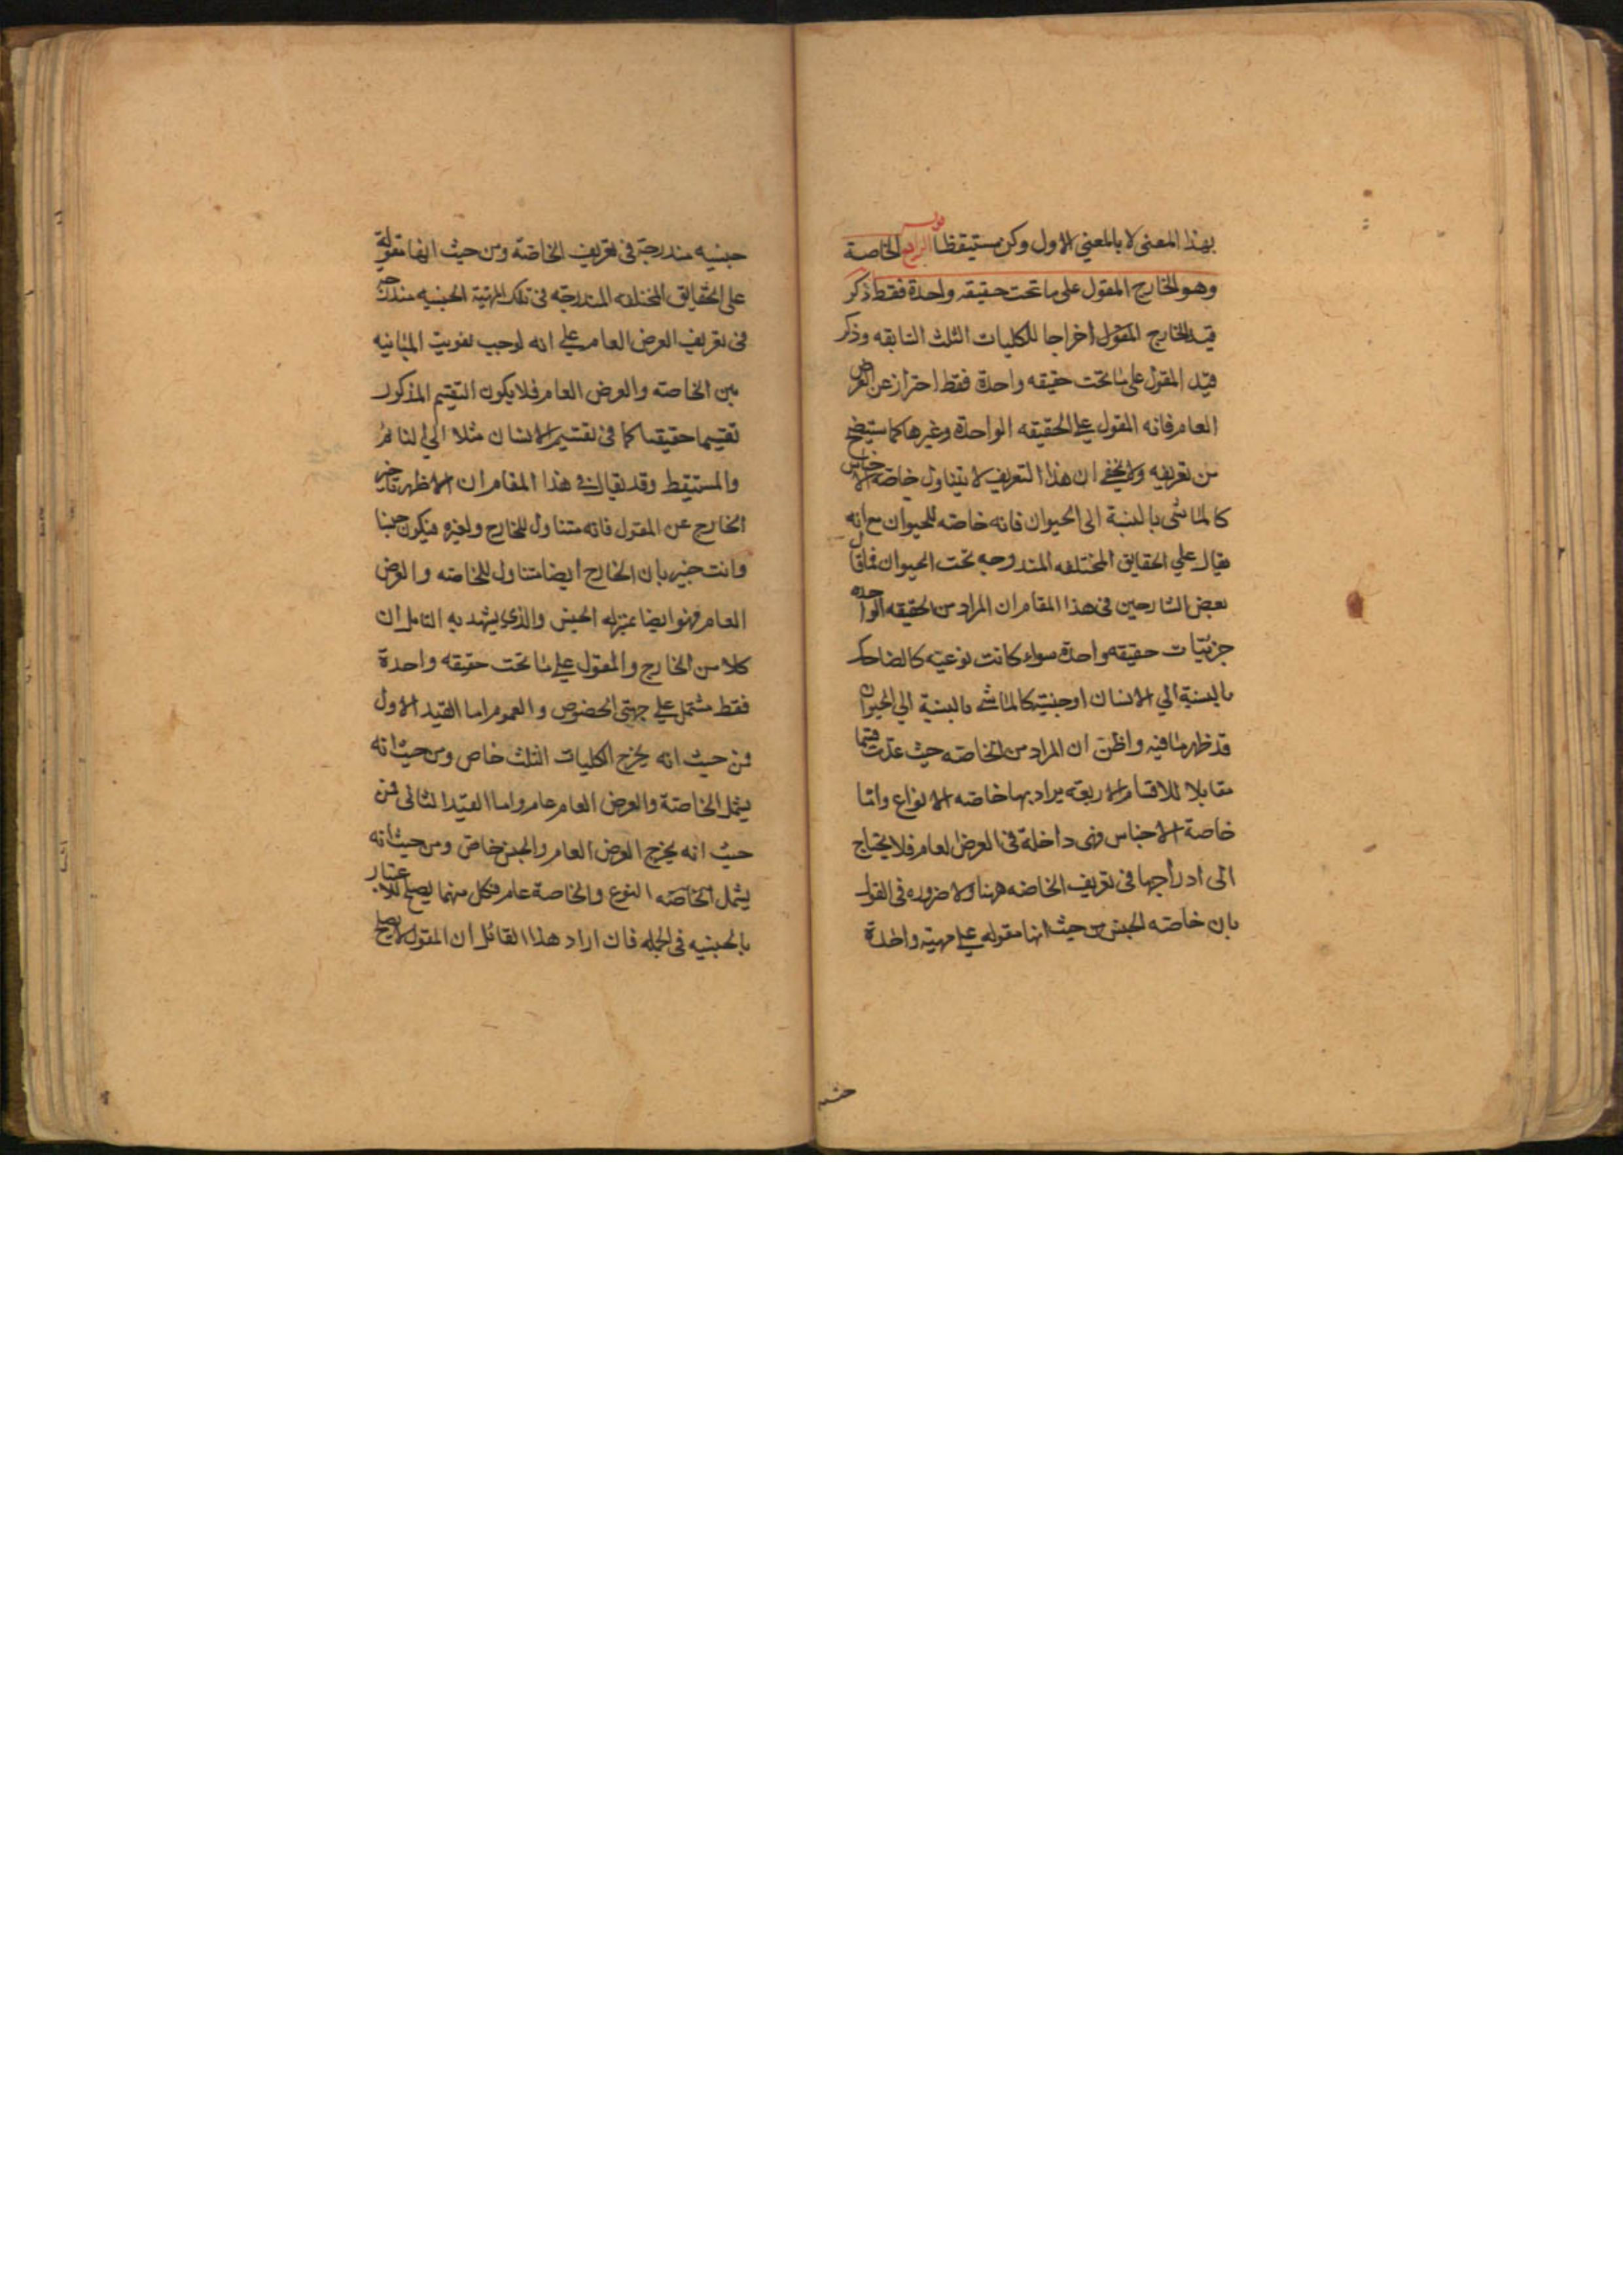 بهذا المعنى لا بالمعنى الاول وكن مستيقظا قوله الرابع الخاصة
وهو الخارج المقول على ما تحت حقيقه واحدة فقط ذكر
قيد الخارج المقول اخراجا للكليات الثلث السابقه وذكر
قيد المقول على ما تحت حقيقه واحدة فقط احتراز عن العرض
العام فانه المقول على الحقيقه الواحدة وغيرها كما ستيضح
من تعريفه ولا يخفى ان هذا التعريف لا يتناول خاصة الاجناس
كالماشى بالنسبة الى الحيوان فانه خاصه للحيوان مع انه
يقال على الحقايق المختلفه المندرجه تحت الحيوان فما قال
بعض الشارحين فى هذا المقام ان المراد من الحقيقه الواحده
جزئيات حقيقه واحدة سواء كانت نوعيه كالضاحك
بالنسبة الي الانسان او جنسية كالماشى بالنسبة الي الحيوان
قد ظهر ما فيه واظن ان المراد من الخاصه حيث عدّت قسما
مقابلا للاقسام الاربعة يراد بها خاصه الانواع واما
خاصة الاجناس فهى داخلة فى العرض العام فلا يحتاج
الى ادراجها فى تعريف الخاصه ههنا ولا ضروره فى القول
بان خاصه الجنس من حيث انها مقوله على مهية واحدة
جنسيه
جنسيه مندرجة فى تعريف الخاصة ومن حيث انها مقولة
على الحقايق المختلفه المندرجه فى تلك المهية الجنسيه مندرجه
فى تعريف العرض العام على انه لوجب تفويت المباينه
بين الخاصه والعرض العام فلا يكون التقسيم المذكور
تقسيما حقيقيا كما فى تقسيم الانسان مثلا الي النائم
والمستيقظ وقد يقال فى هذا المقام ان الاظهر تاخير
الخارج عن المقول فانه متناول للخارج ولغيره فيكون جنسا
وانت خبير بان الخارج ايضا متناول للخاصه والعرض
العام فهو ايضا بمنزله الجنس والذى يشهد به التامل ان
كلا من الخارج والمقول على ما تحت حقيقه واحدة
فقط مشتمل على جهتى الخصوص والعموم اما القيد الاول
فمن حيث انه يخرج الكليات الثلث خاص ومن حيث انه
يشمل الخاصة والعرض العام عام واما القيد الثانى فمن
حيث انه يخرج العرض العام والجنس خاص ومن حيث انه
يشمل الخاصه النوع والخاصة عام فكل منهما يصلح للاعتبار
بالجنسيه فى الجمله فان اراد هذا القائل ان المقول لا يصلح